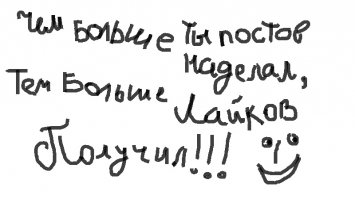 Чем Больше Ты постов
наделал,
Тем Больше Лайков
Получил!!!